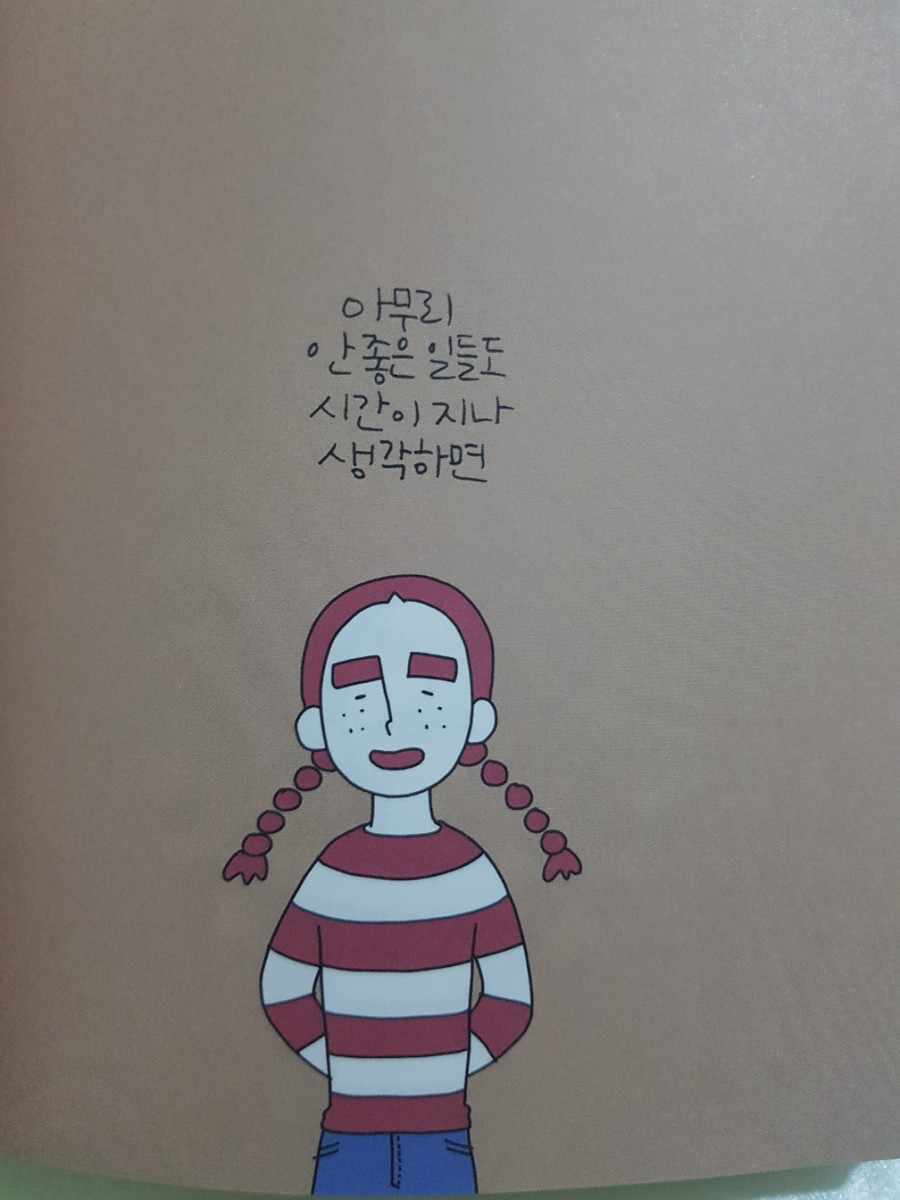 아무리
안 좋은 일들도
시간이 지나
생각하면